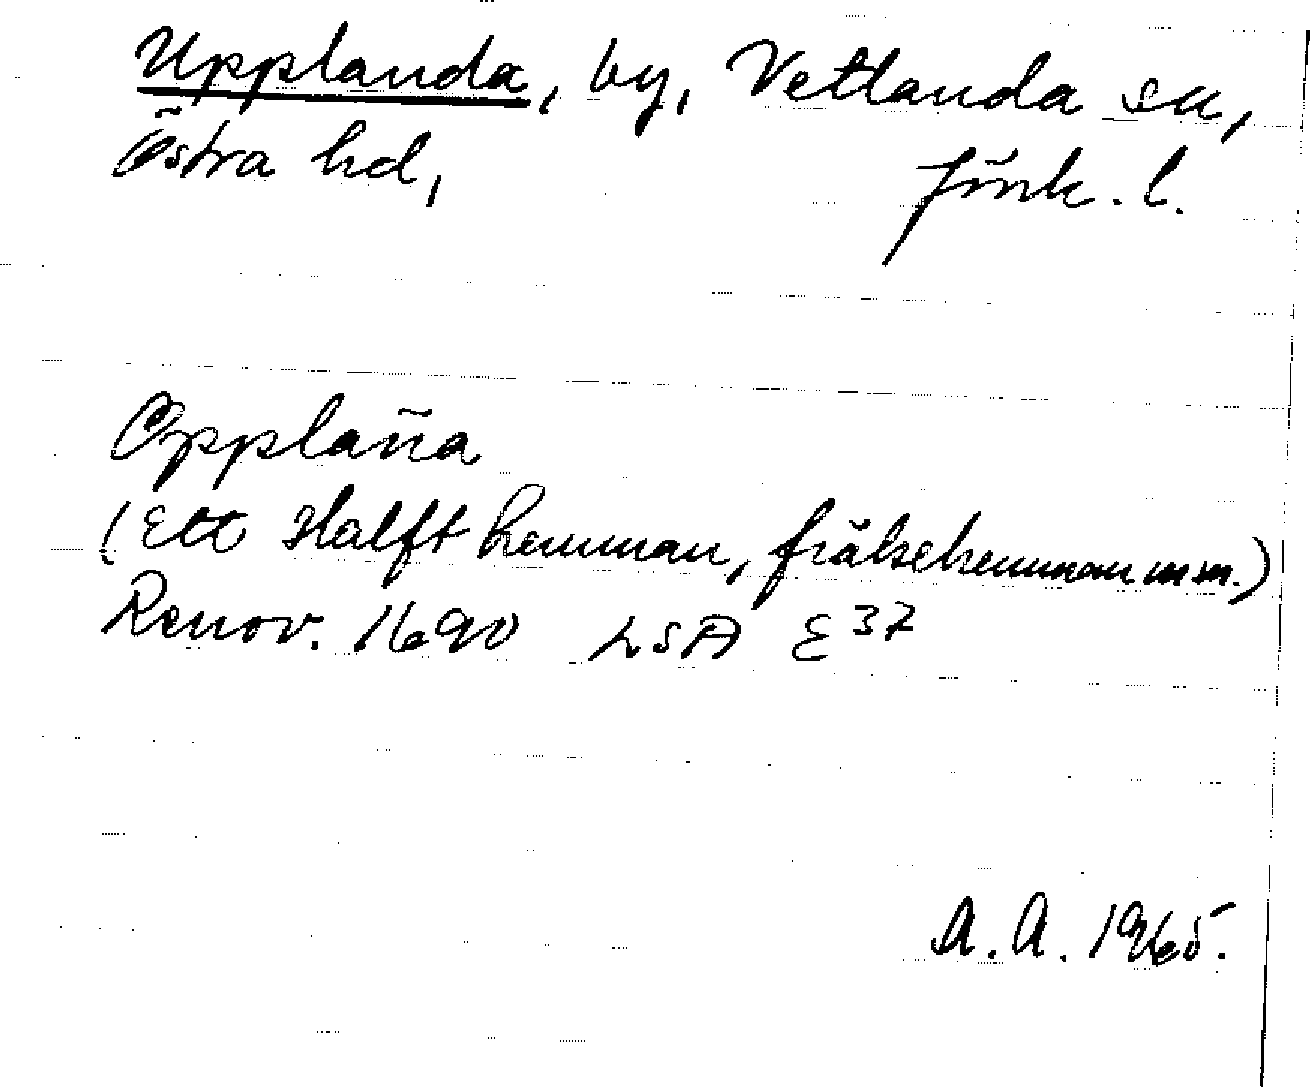 Upplanda, by, Vetlanda sn,
Östra hd, Jönk. l.
Opplan̄a
(Ett Halft hemman, frälsehemman m.m.)
Renov. 1690 LSA E 37
A. A. 1965.